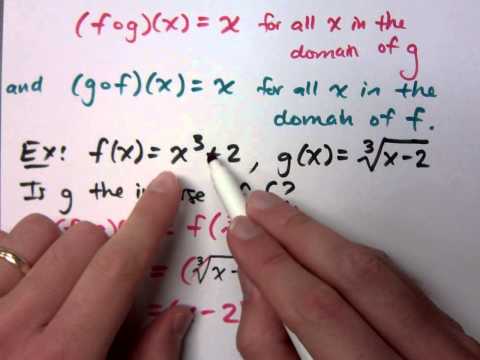 (f∘g)(x) = x for all x in the
domain of g
and (g∘f)(x) = x for all x in the
domain of f.
Ex: f(x) = x³+2, g(x) = ∛(x-2)
Is g the inverse of f?
= f(
= (∛x-
= - 2